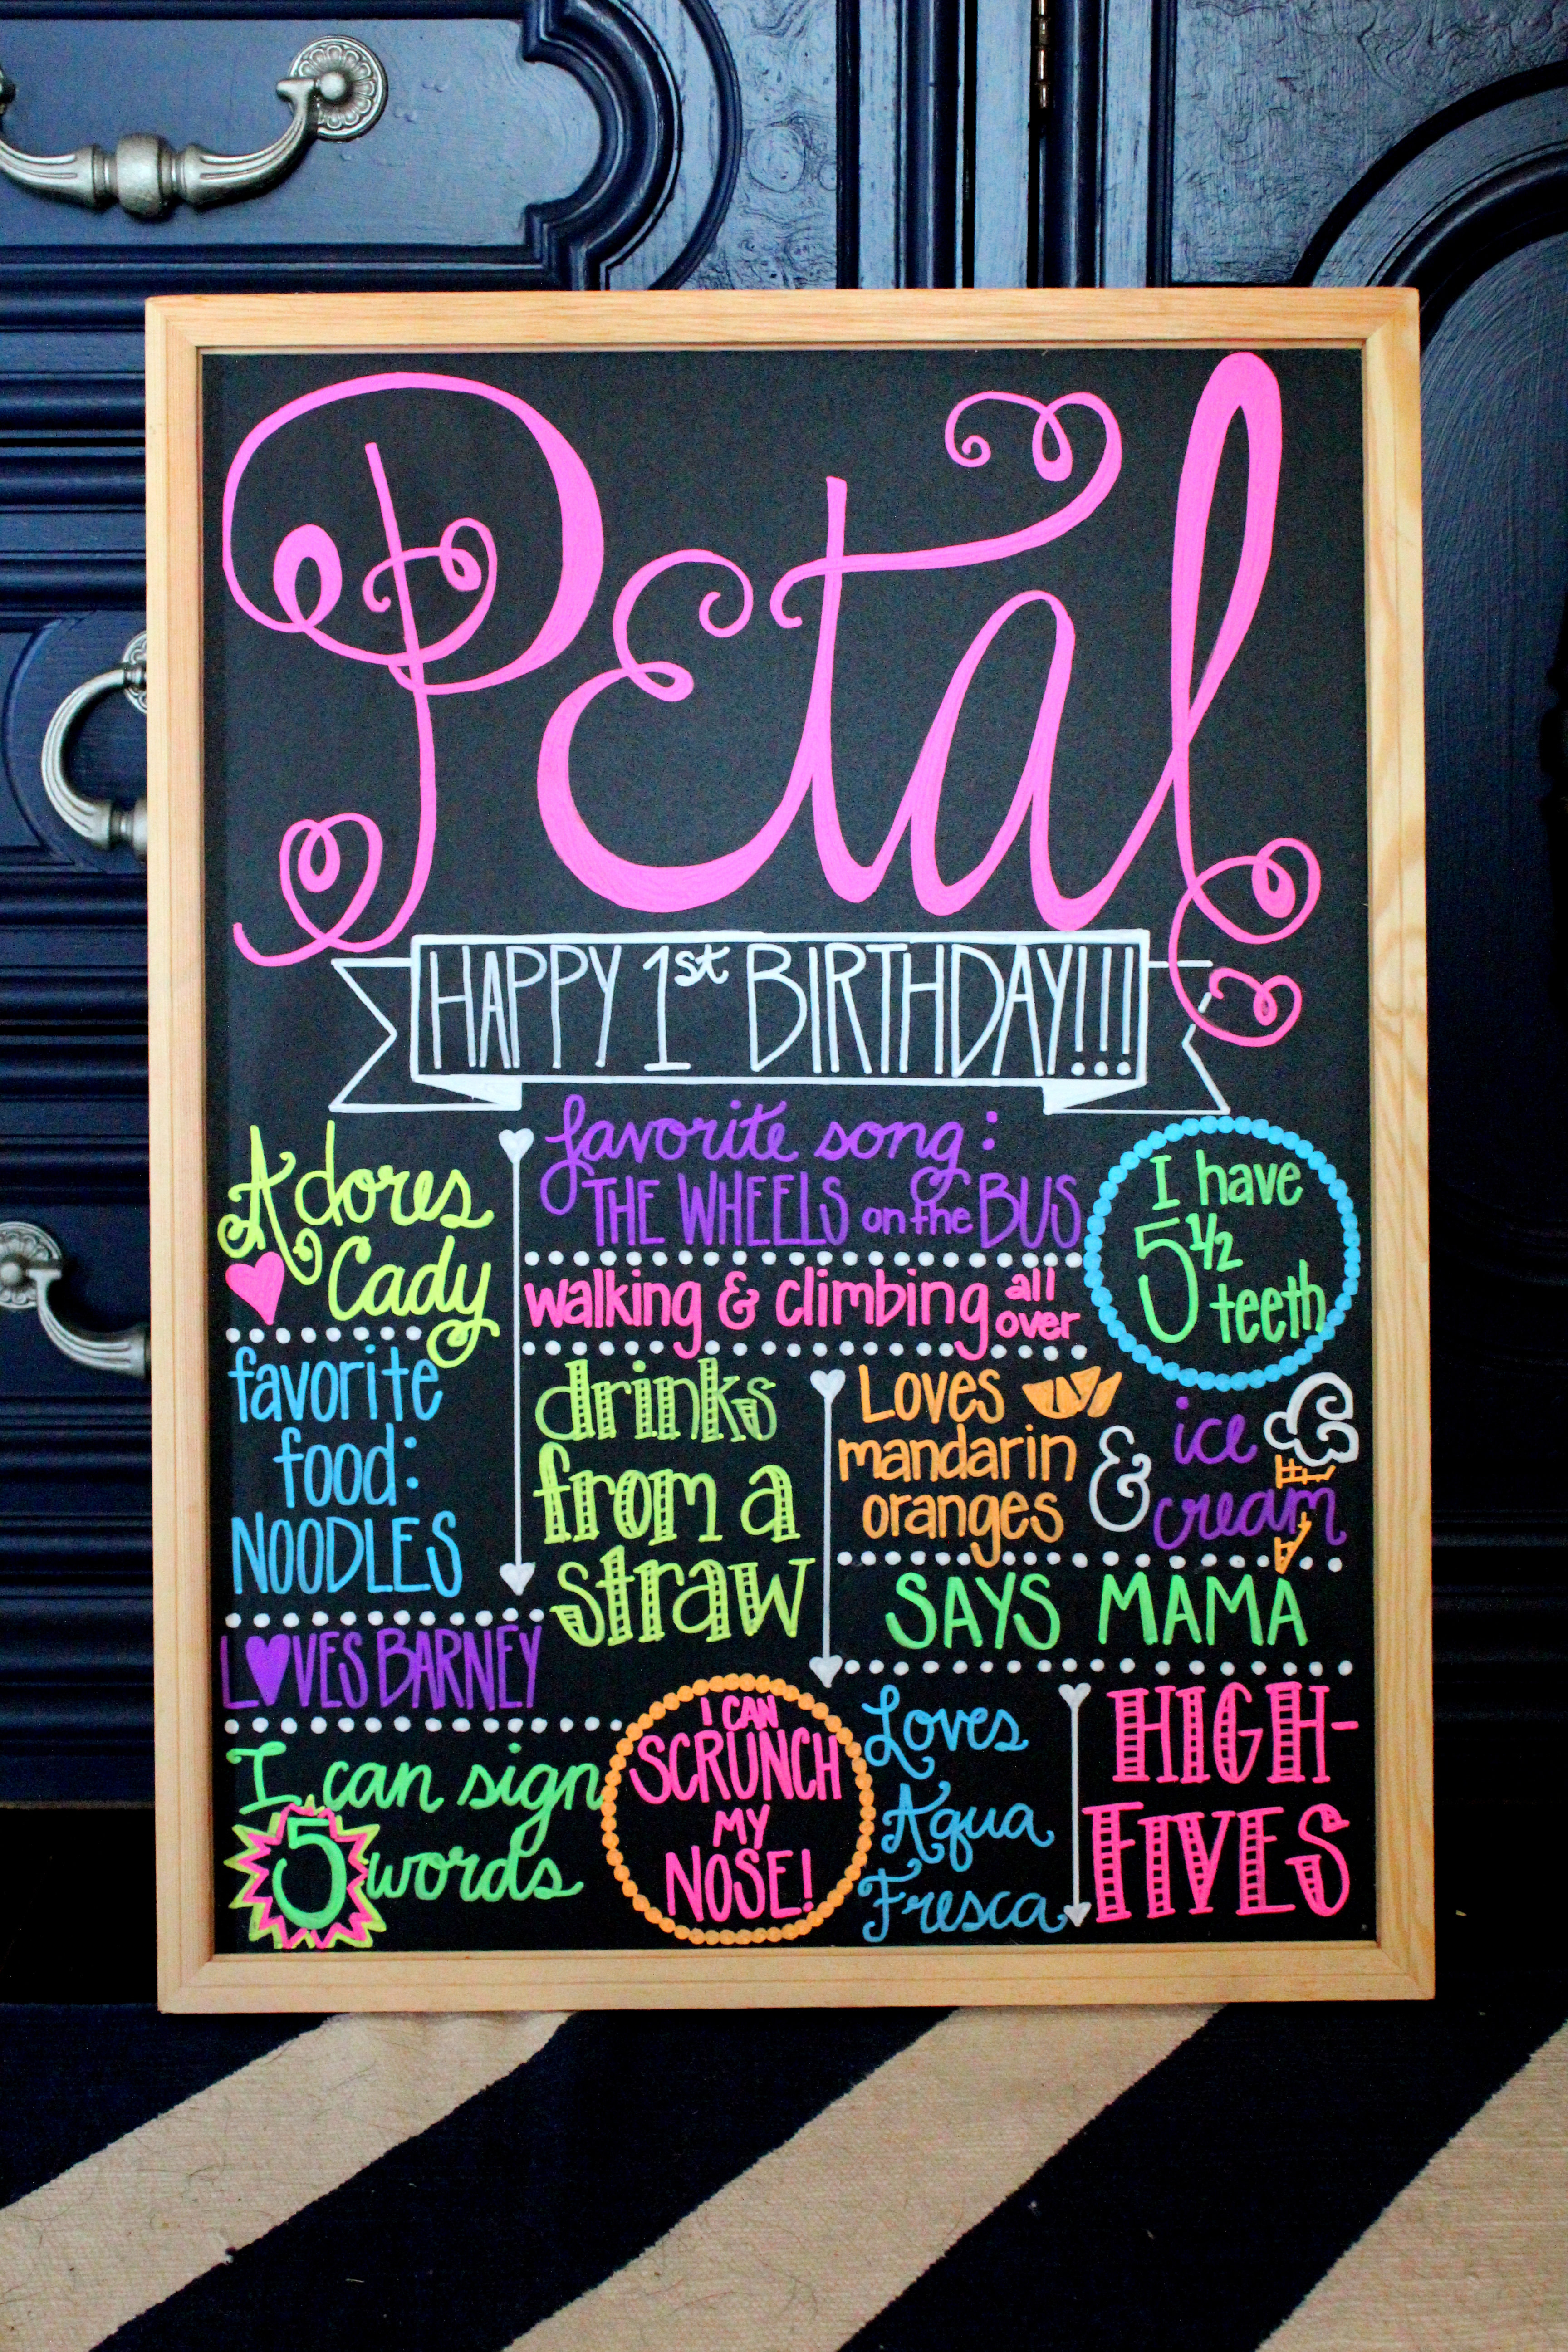 Petal
HAPPY 1st BIRTHDAY!!!
Adores
Cady
favorite song:
THE WHEELS on the BUS
walking & climbing all over
I have
5 1/2
teeth
favorite
food:
NOODLES
drinks
from a
straw
Loves
mandarin
oranges
&
ice
cream
SAYS MAMA
LOVES BARNEY
I can sign
5 words
I CAN
SCRUNCH
MY
NOSE!
Loves
Aqua
Fresca
HIGH-
FIVES